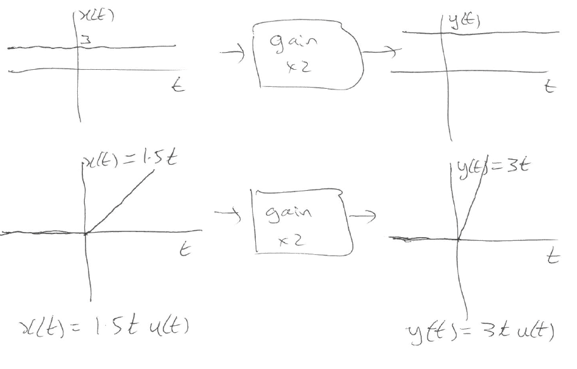 x(t)
3
t
gain
x2
y(t)
t
x(t) = 1.5t
t
gain
x2
y(t) = 3t
t
x(t) = 1.5t u(t)
y(t) = 3t u(t)